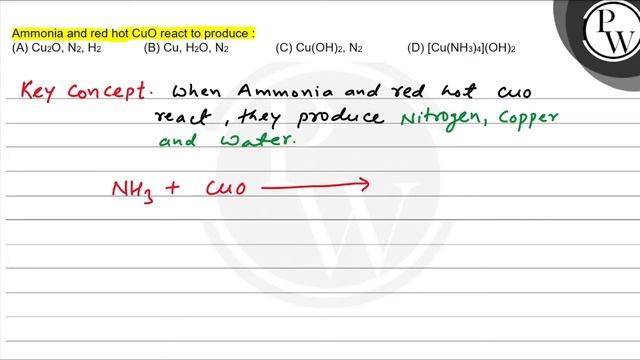 Ammonia and red hot CuO react to produce :
(A) Cu2O, N2, H2 (B) Cu, H2O, N2 (C) Cu(OH)2, N2 (D) [Cu(NH3)4](OH)2
Key Concept. When Ammonia and red hot CuO
react, they produce Nitrogen, Copper
and Water.
NH3 + CuO ⟶
P
W
P
W